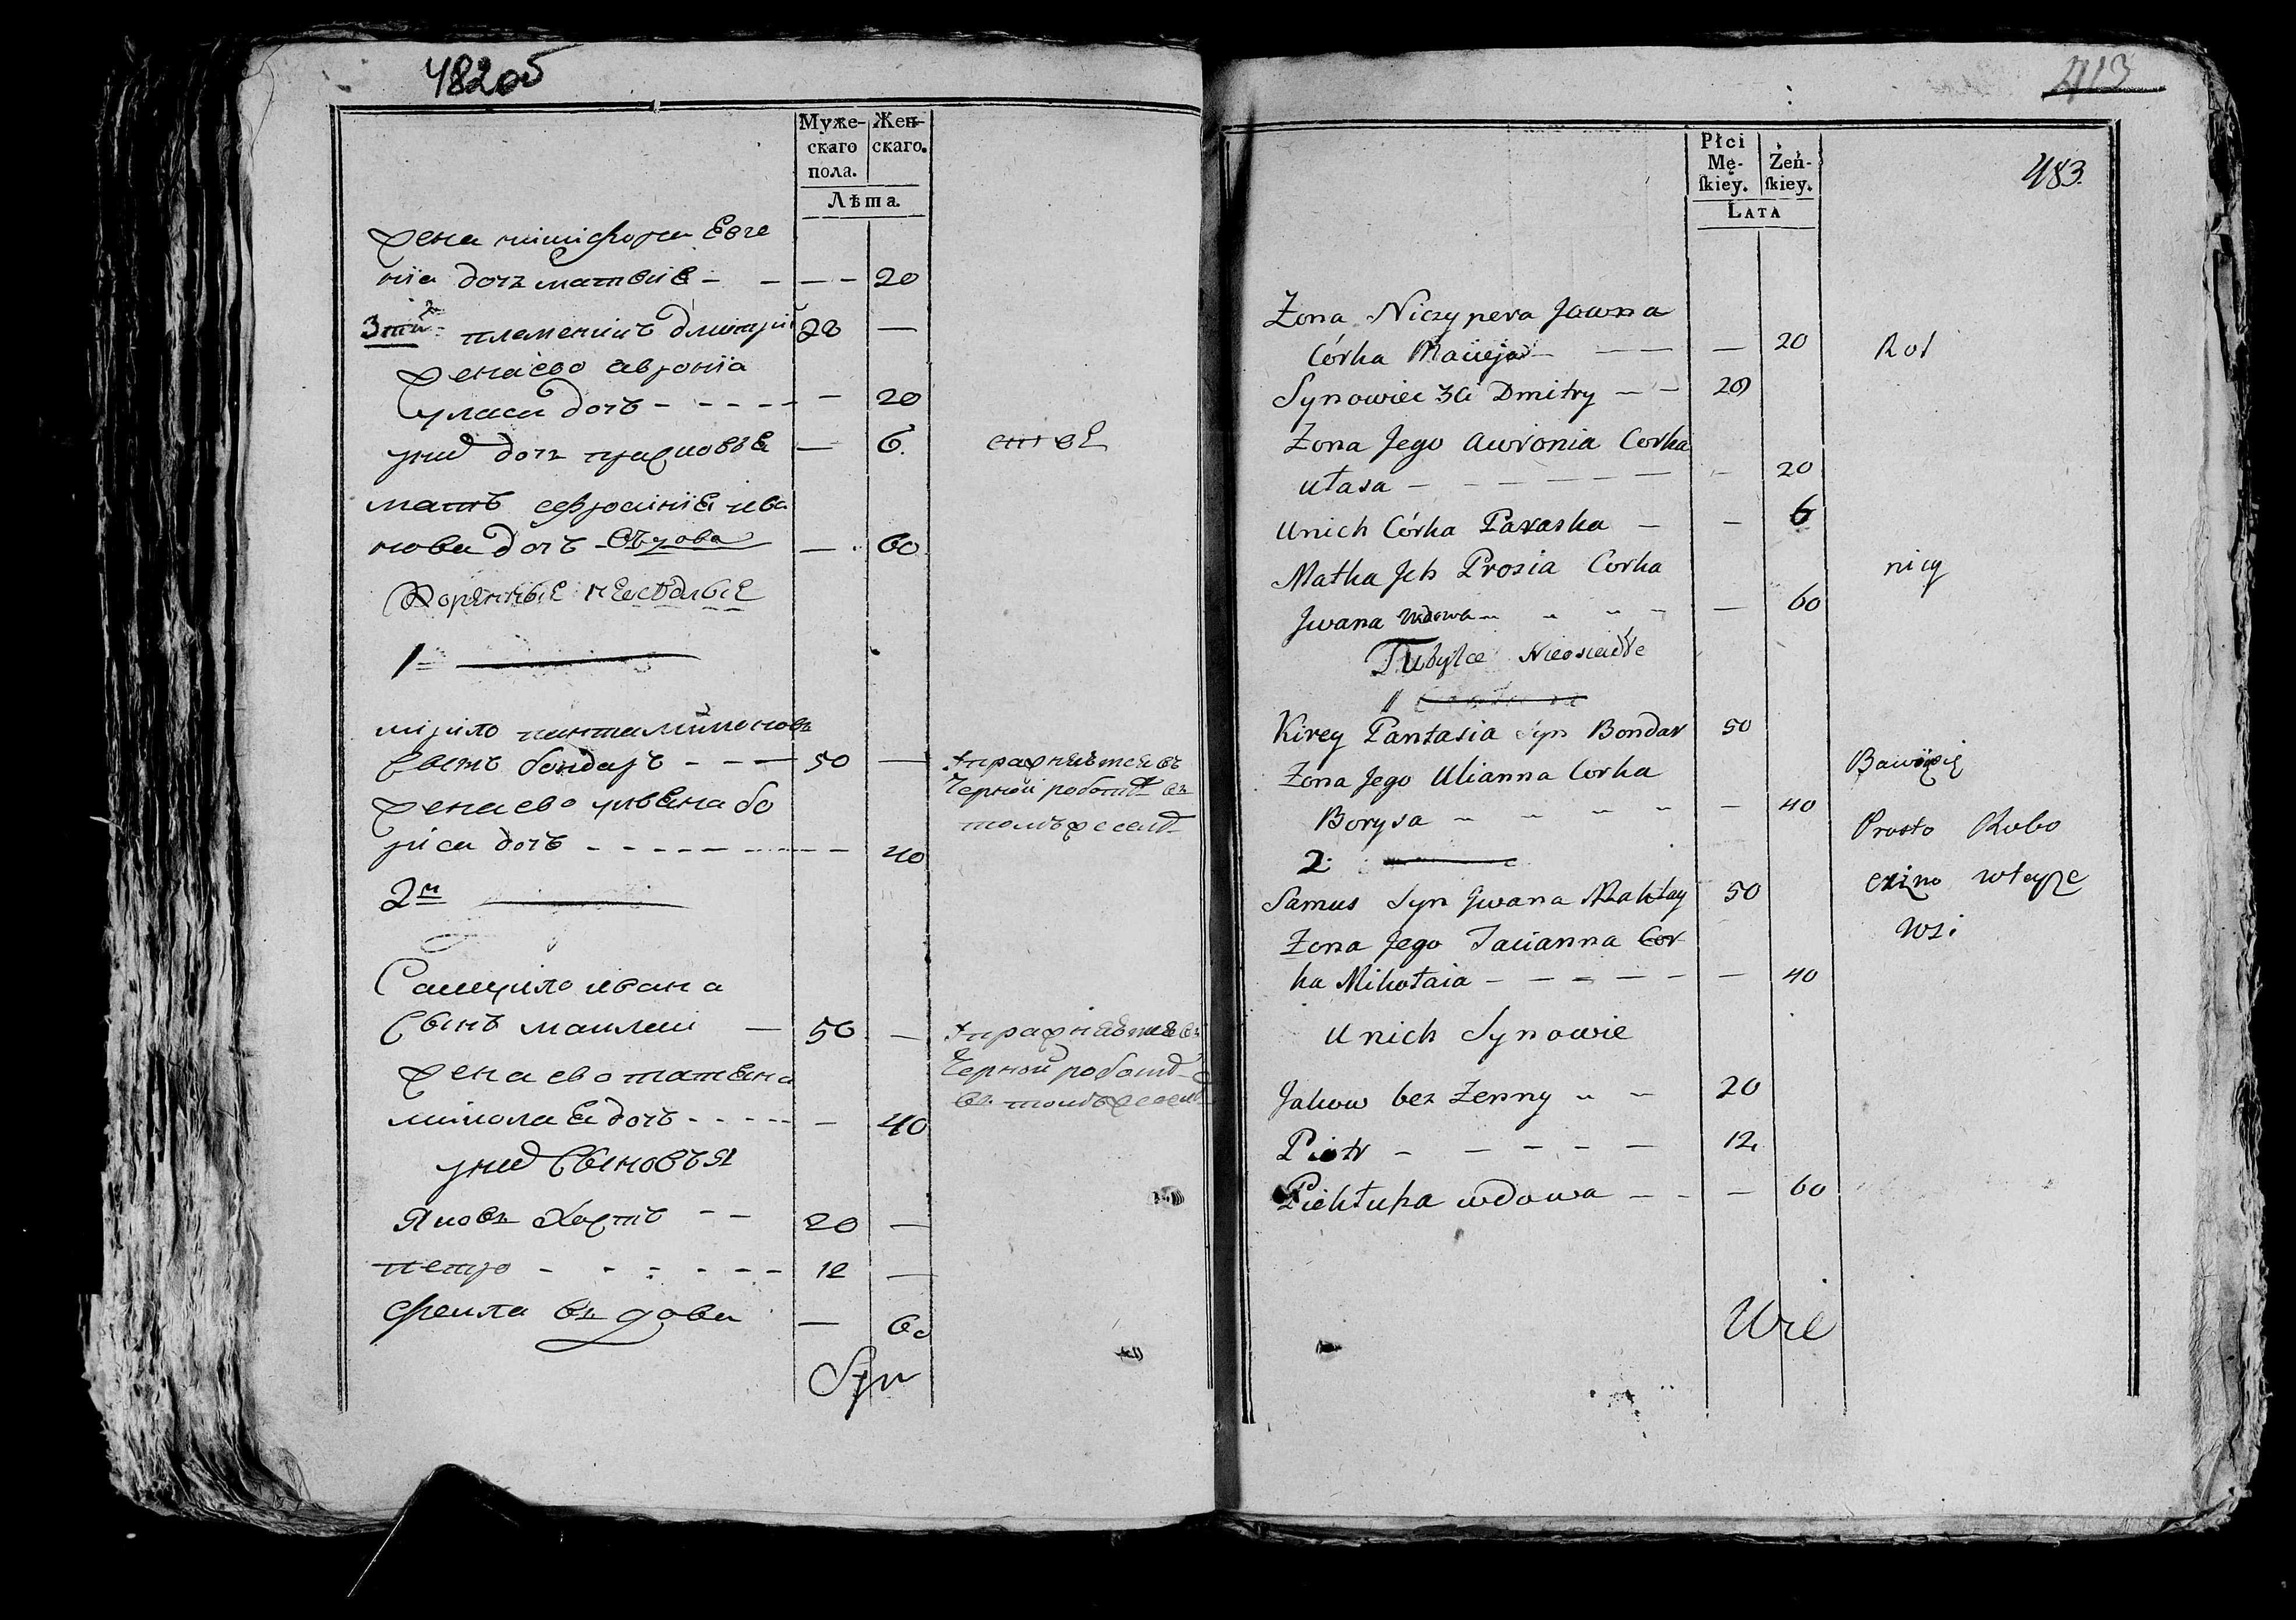 482об
Муже-
скаго
пола.
Жен-
скаго.
Лѣта.
жена никифора Евге
нїа дочь матвеıѣ - - - - 20
3тıй племенникъ дмитрıй 28 —
жена ево авронїа
уласа дочь - - - - - - 20
у нıхъ дочь прасковѣѣ — 6.
мать ефросинїѣ ива
нова дочь въдова — 60
Коренные неоседлые
1й
кирıло панталимоновъ
Сынъ бондарь - - - 50 —
упражняетсѣ въ
черной работѣ въ
томъ же селѣ
жена ево улѣѣна бо
рıса дочь - - - - - - - 40
2й
Самуıло ивана
Сынъ маклай — 50 —
упражняетсѣ въ
черной работѣ
въ томъ же селѣ
жена ево татѣѣна
николаѣ дочь - - - - - - 40
у нıхъ Сыновъя
Яковъ холстъ - - 20 —
петро - - - - - - 12 —
фекла въдова — 60
Syn
413
483.
Płci
Mę-
skiey.
Żeń-
skiey.
Lata
Żona Niczypera Jawna
Córka Macieja - — — 20
Rol
Synowiec 3ci Dmitry — - 29
Żona Jego Awronia Corka
Ułasa - - - - - - - 20
Unich Córka Paraska — - 6
Matka Jch Prosia Corka
nicy
Jwana wdowa - - - - — 60
Tubylce Nieosiedłe
1
Kirey Pantasia Syn Bondar 50
Żona Jego Ulianna Corka
Bawiące się
Borysa - - - - - 40
Prosto Robo
2.
cizno w teyże
Samus Syn Jwana Makłay 50
Żona Jego Tacianna Cor
wsi
ka Mikołaia - - - - - - 40
Unich Synowie
Jakow bez Zenny - - 20
Piotr - - - - - 12
Piekłuka wdowa - - - 60